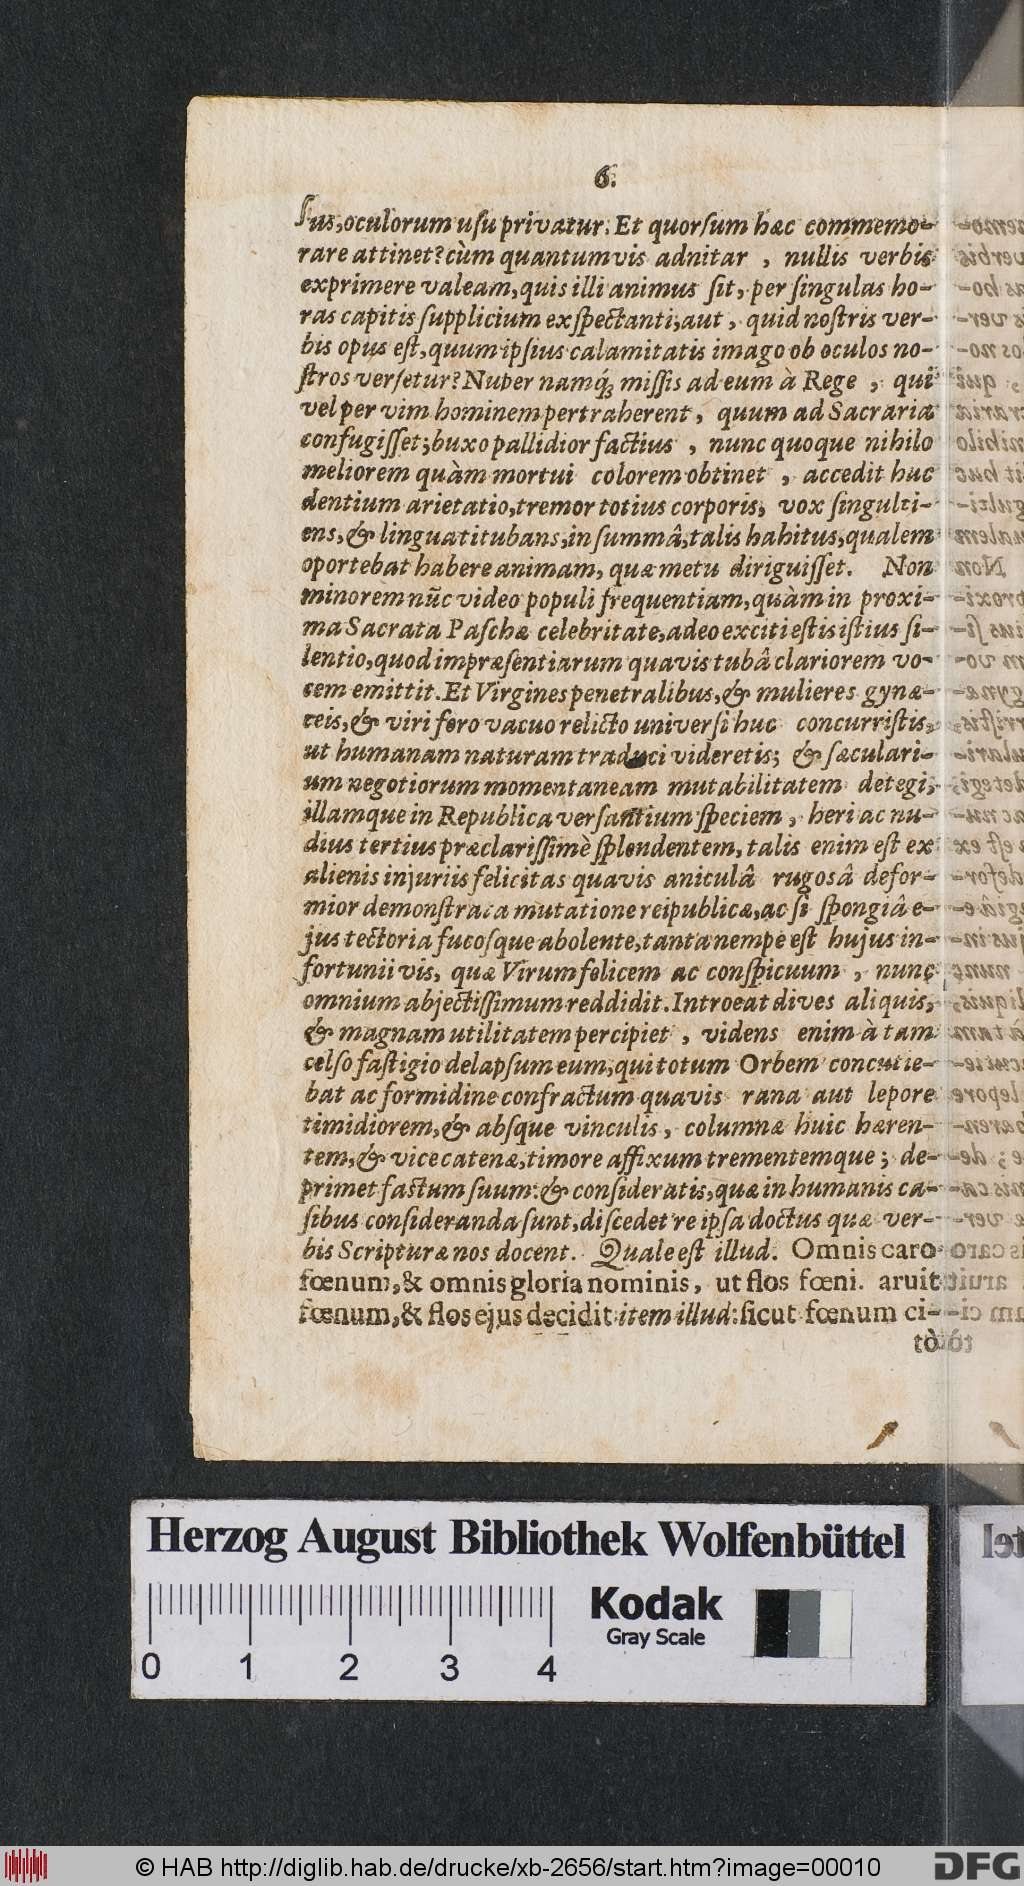 6.
ſus,oculorum uſu privatur. Et quorſum hæc commemo-
rare attinet? cùm quantumvis adnitar , nullis verbis
exprimere valeam, quis illi animus ſit, per ſingulas ho-
ras capitis ſupplicium exſpectanti, aut , quid noſtris ver-
bis opus eſt, quum ipſius calamitatis imago ob oculos no-
ſtros verſetur? Nuper namq́; miſſis ad eum à Rege , qui
vel per vim hominem pertraherent , quum ad Sacraria
confugiſſet; buxo pallidior factius , nunc quoque nihilo
meliorem quàm mortui colorem obtinet , accedit huc
dentium arietatio, tremor totius corporis, vox ſingulti-
ens, & lingua titubans, in ſummâ, talis habitus, qualem
oportebat habere animam, quæ metu diriguiſſet. Non
minorem nũc video populi frequentiam, quàm in proxi-
ma Sacrata Paſchæ celebritate, adeo exciti eſtis iſtius ſi-
lentio, quod impræſentiarum quavis tubâ clariorem vo-
cem emittit. Et Virgines penetralibus, & mulieres gynæ-
ceis, & viri foro vacuo relicto univerſi huc concurriſtis,
ut humanam naturam traduci videretis; & ſæculari-
um negotiorum momentaneam mutabilitatem detegi;
illamque in Republica verſantium ſpeciem , heri ac nu-
dius tertius præclariſſimè ſplendentem, talis enim eſt ex
alienis injuriis felicitas quavis aniculâ rugosâ defor-
mior demonſtrata mutatione reipublicæ, ac ſi ſpongiâ e-
jus tectoria fucoſque abolente, tanta nempe eſt hujus in-
fortunii vis, quæ Virum felicem ac conſpicuum , nunc
omnium abjectiſſimum reddidit. Introeat dives aliquis,
& magnam utilitatem percipiet , videns enim à tam
celſo faſtigio delapſum eum, qui totum Orbem concutie-
bat ac formidine confractum quavis rana aut lepore
timidiorem, & abſque vinculis , columnæ huic hæren-
tem, & vice catenæ, timore affixum trementemque ; de-
primet faſtum ſuum: & conſideratis, quæ in humanis ca-
ſibus conſideranda ſunt, diſcedet re ipſa doctus quæ ver-
bis Scripturæ nos docent. Quale eſt illud. Omnis caro
fœnum, & omnis gloria nominis, ut flos fœni. aruit
fœnum, & flos ejus decidit item illud: ſicut fœnum ci-
tò
Herzog August Bibliothek Wolfenbüttel
Kodak
Gray Scale
0 1 2 3 4
© HAB http://diglib.hab.de/drucke/xb-2656/start.htm?image=00010
DFG